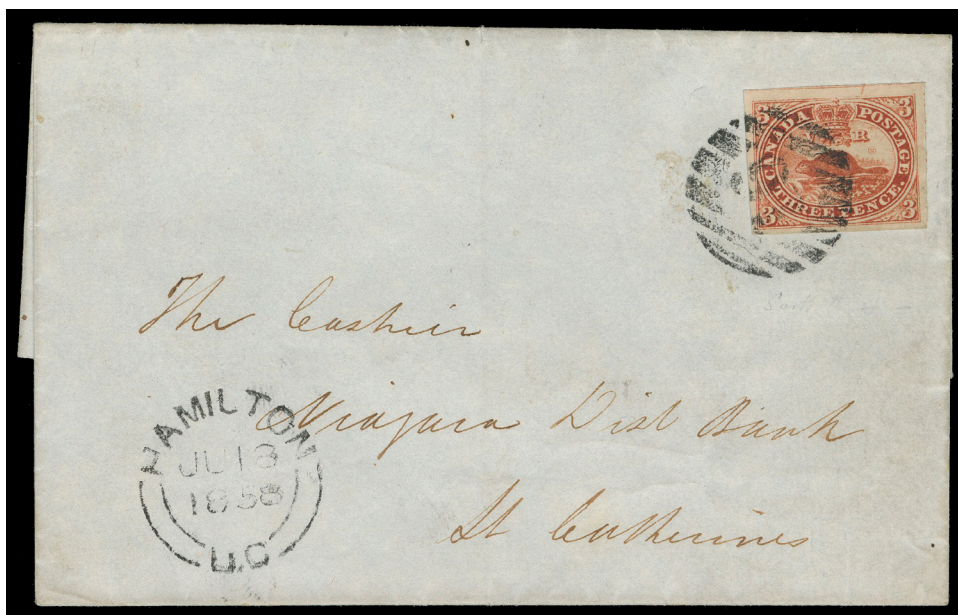 3 3
CANADA POSTAGE
R
THREE PENCE.
3 3
The Cashier
Niagara Dist Bank
St Catherines
HAMILTON
JU 18
1858
U.C